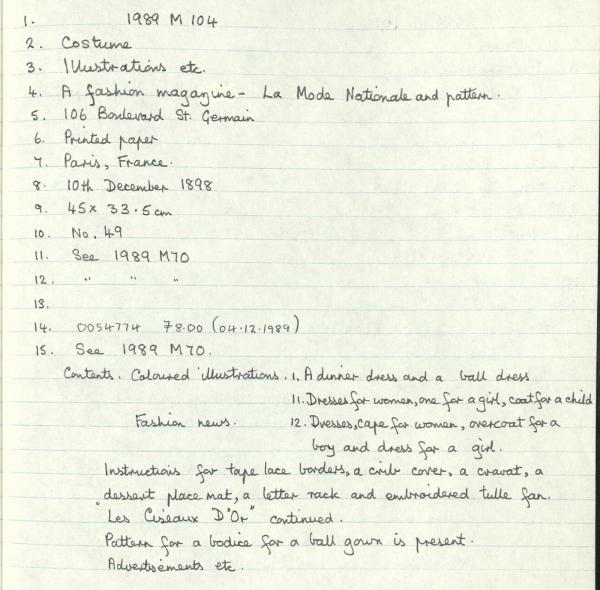 1. 1989 M 104
2. Costume
3. Illustrations etc.
4. A fashion magazine - La Mode Nationale and pattern.
5. 106 Boulevard St. Germain
6. Printed paper
7. Paris, France.
8. 10th December 1898
9. 45 x 33.5 cm
10. No. 49
11. See 1989 M70
12. " " "
13.
14. 0054774 78.00 (04.12.1989)
15. See 1989 M70.
Contents. Coloured illustrations. 1. A dinner dress and a ball dress
11. Dresses for women, one for a girl, coat for a child
Fashion news. 12. Dresses, cape for women, overcoat for a
boy and dress for a girl.
Instructions for tape lace borders, a crib cover, a cravat, a
dessert place mat, a letter rack and embroidered tulle fan.
"Les Ciseaux D'Or" continued.
Pattern for a bodice for a ball gown is present.
Advertisements etc.